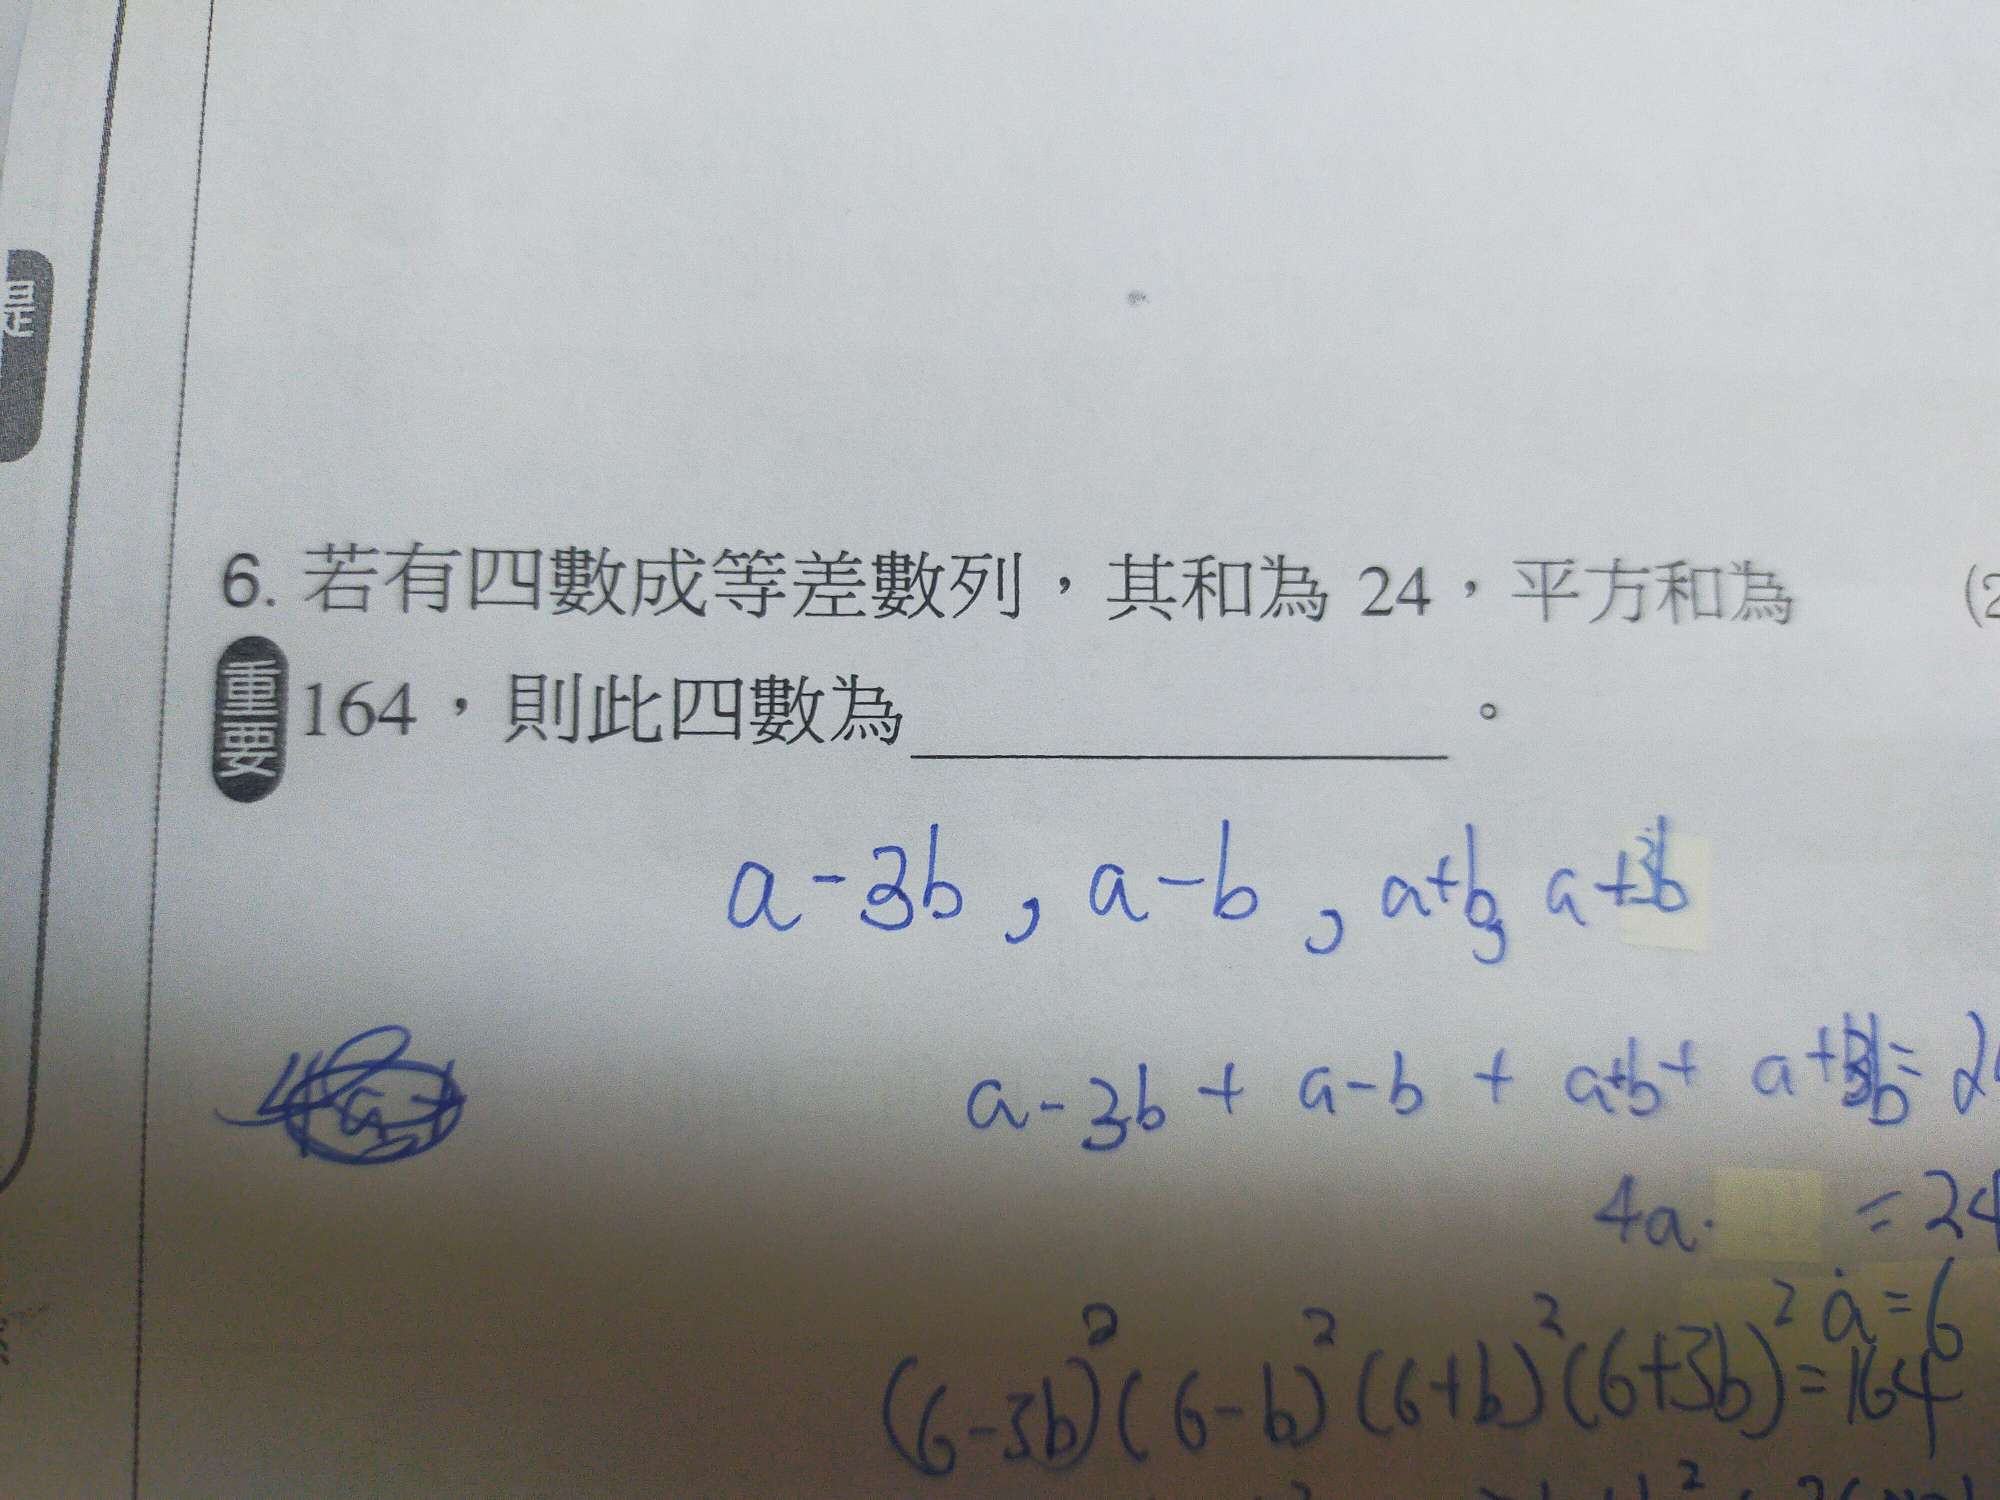 6. 若有四數成等差數列，其和為 24，平方和為
(2
重要
164，則此四數為
。
a-3b, a-b, a+b, a+3b
a-3b + a-b + a+b + a+3b = 2
4a = 24
a=6
(6-3b)²(6-b)²(6+b)²(6+3b)²=164